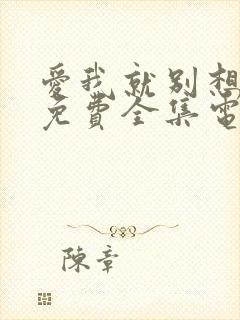 愛我就別想
免費全集電
陳章